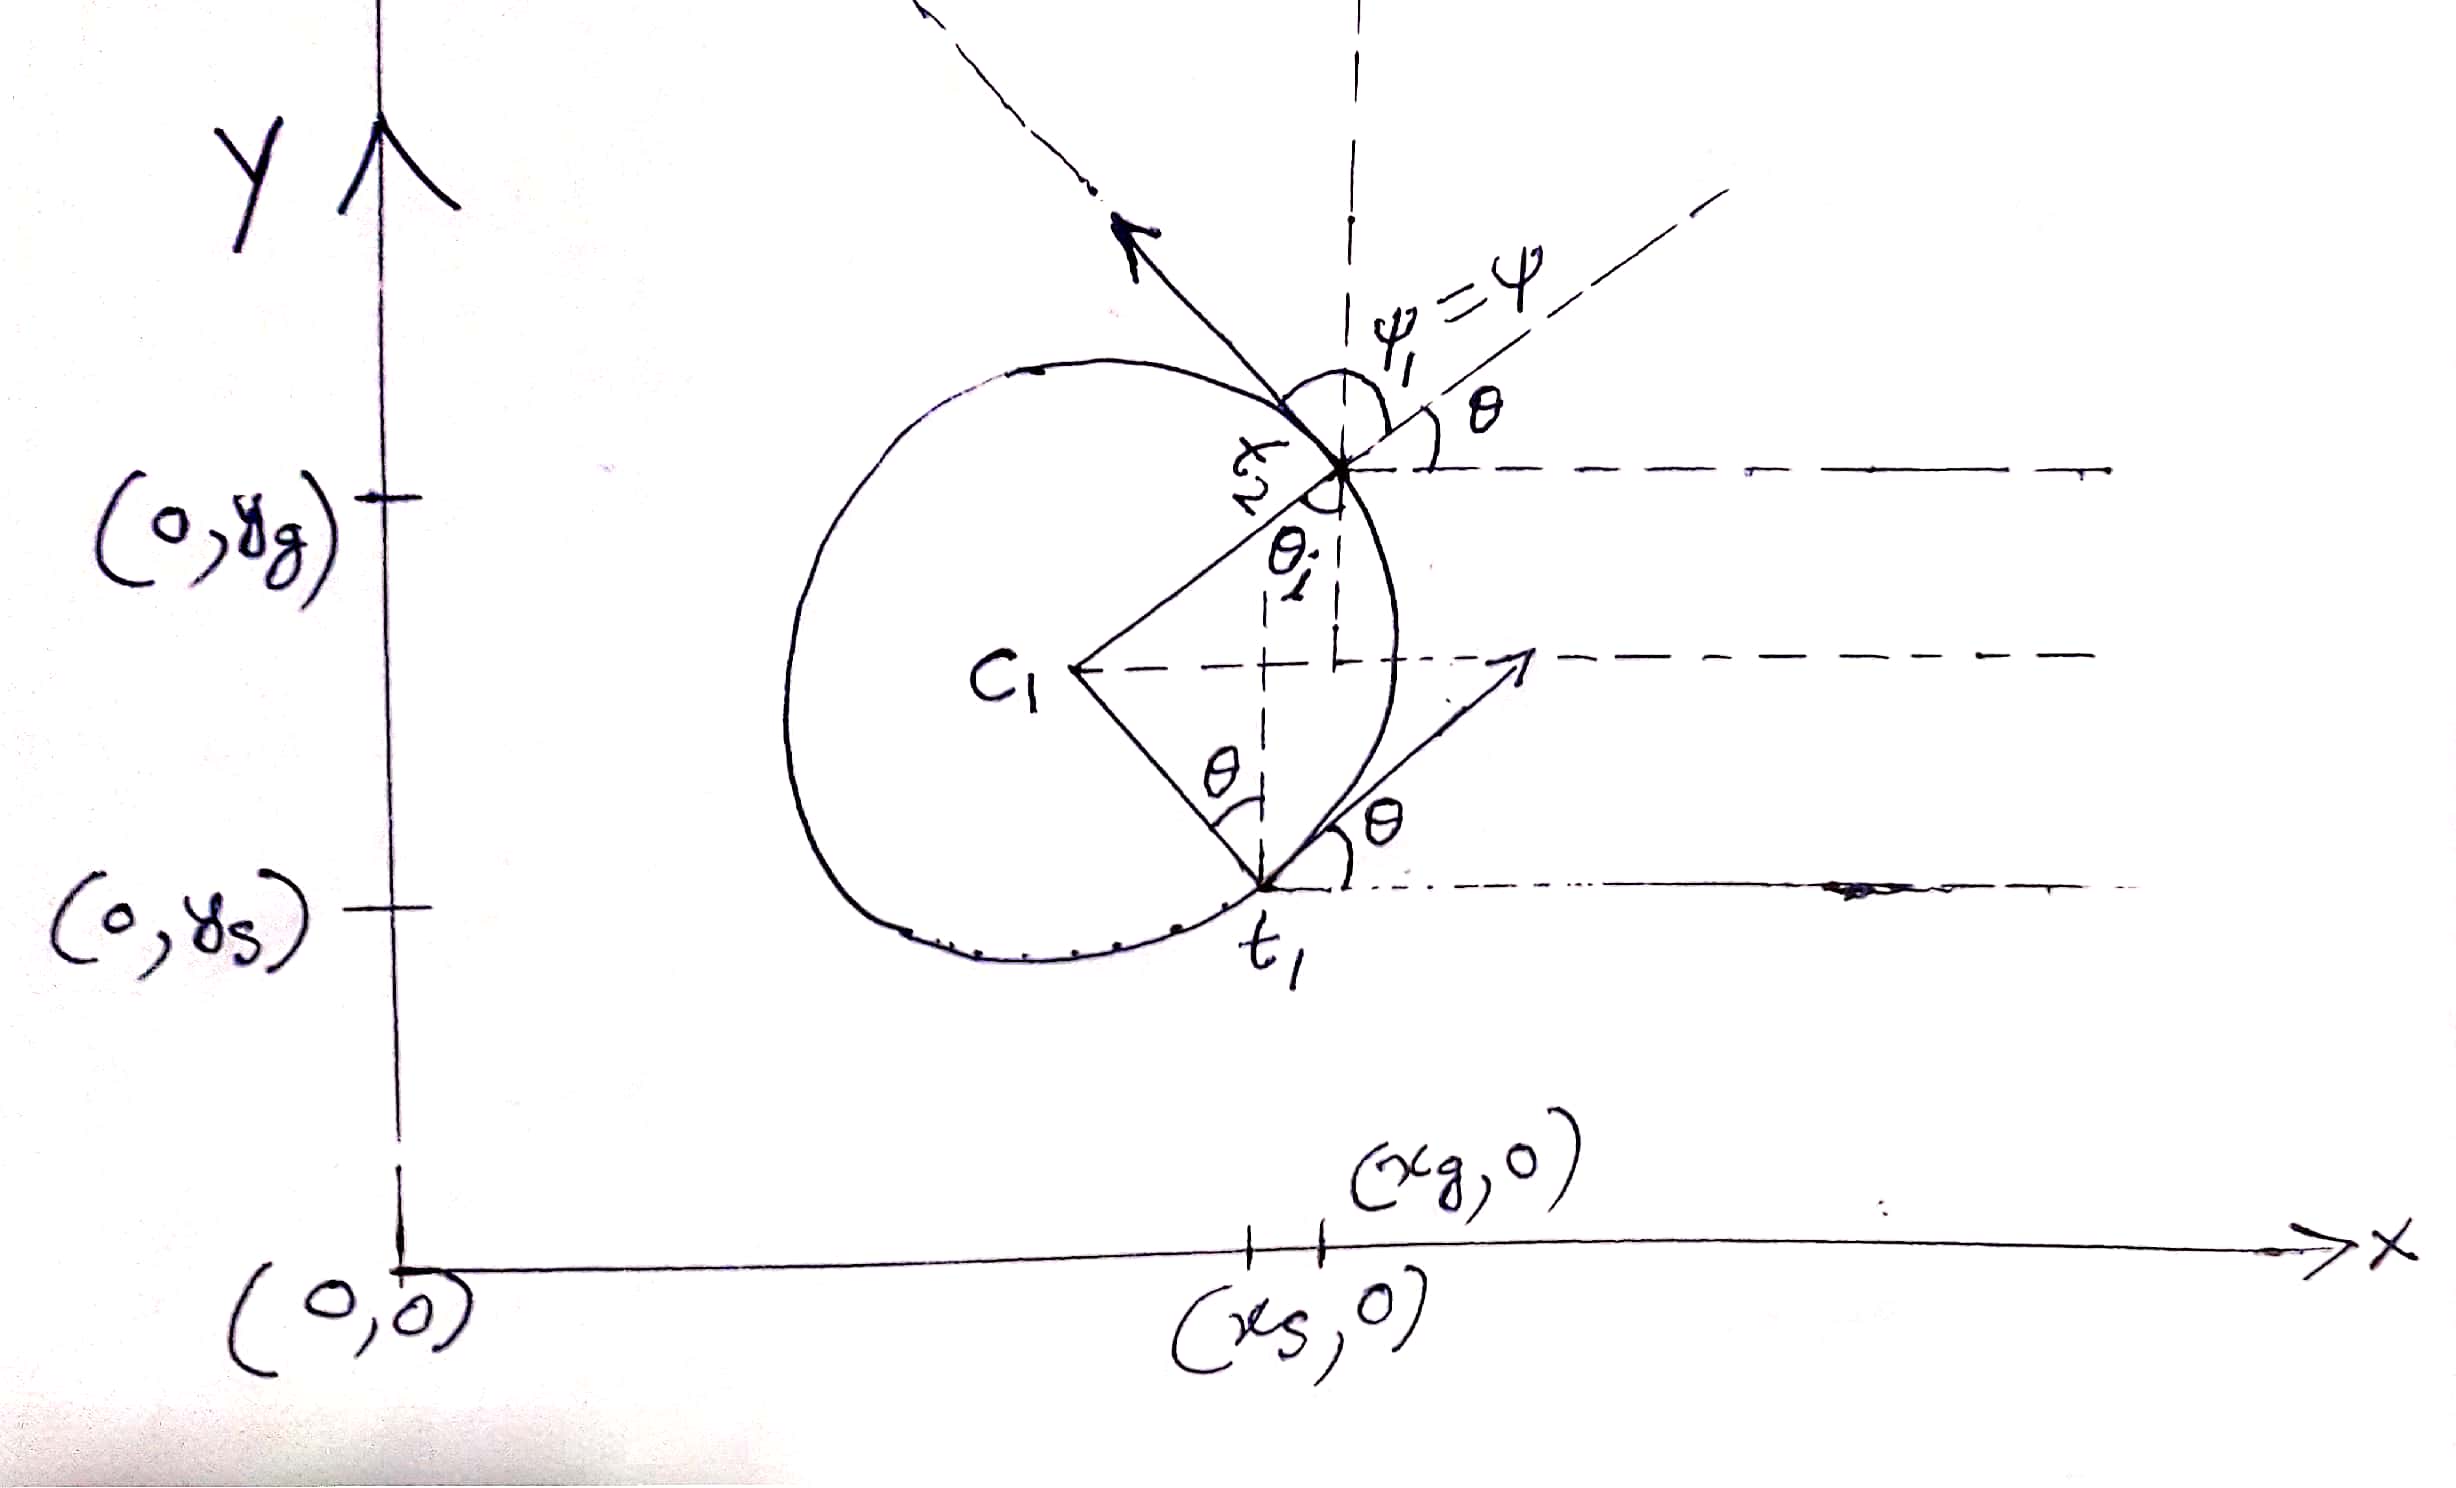 Y
ψ₁ = ψ
θ
(0, yg)
t₂
θᵢ
C₁
θ
θ
(0, ys)
t₁
(xg, 0)
X
(0, 0)
(xs, 0)